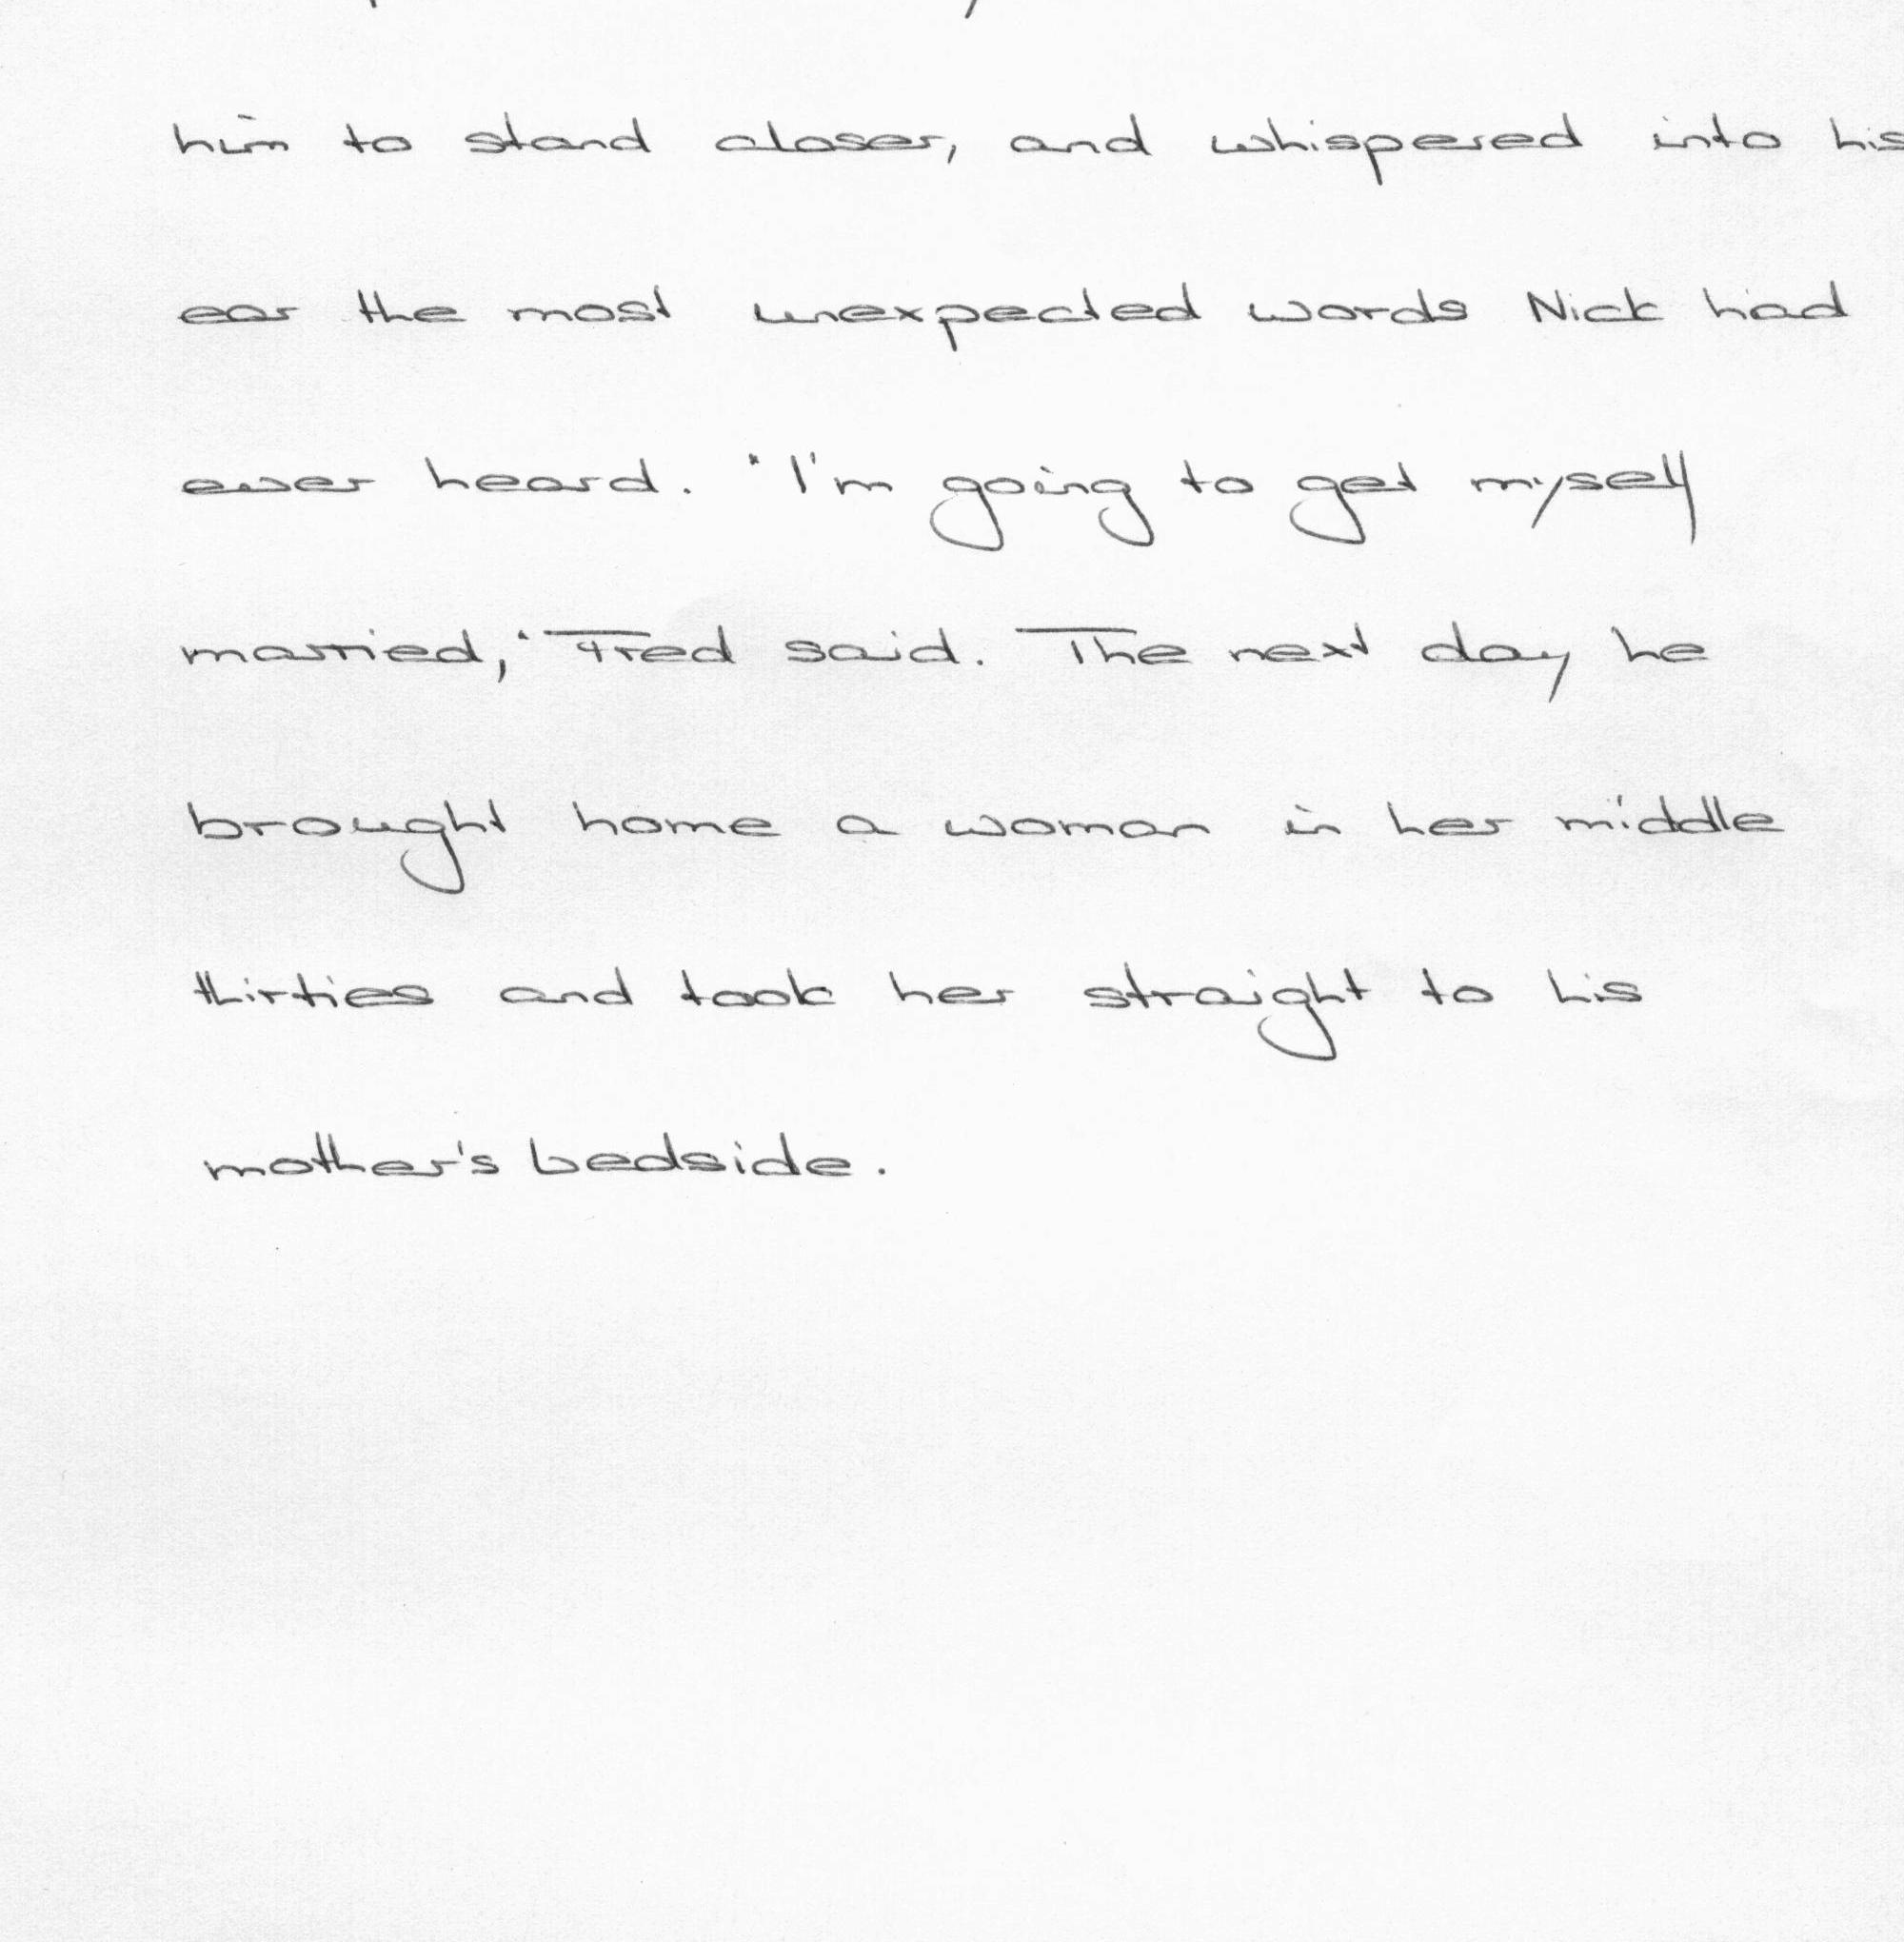 him to stand closer, and whispered into his
ear the most unexpected words Nick had
ever heard. "I'm going to get myself
married," Fred said. The next day he
brought home a woman in her middle
thirties and took her straight to his
mother's bedside.